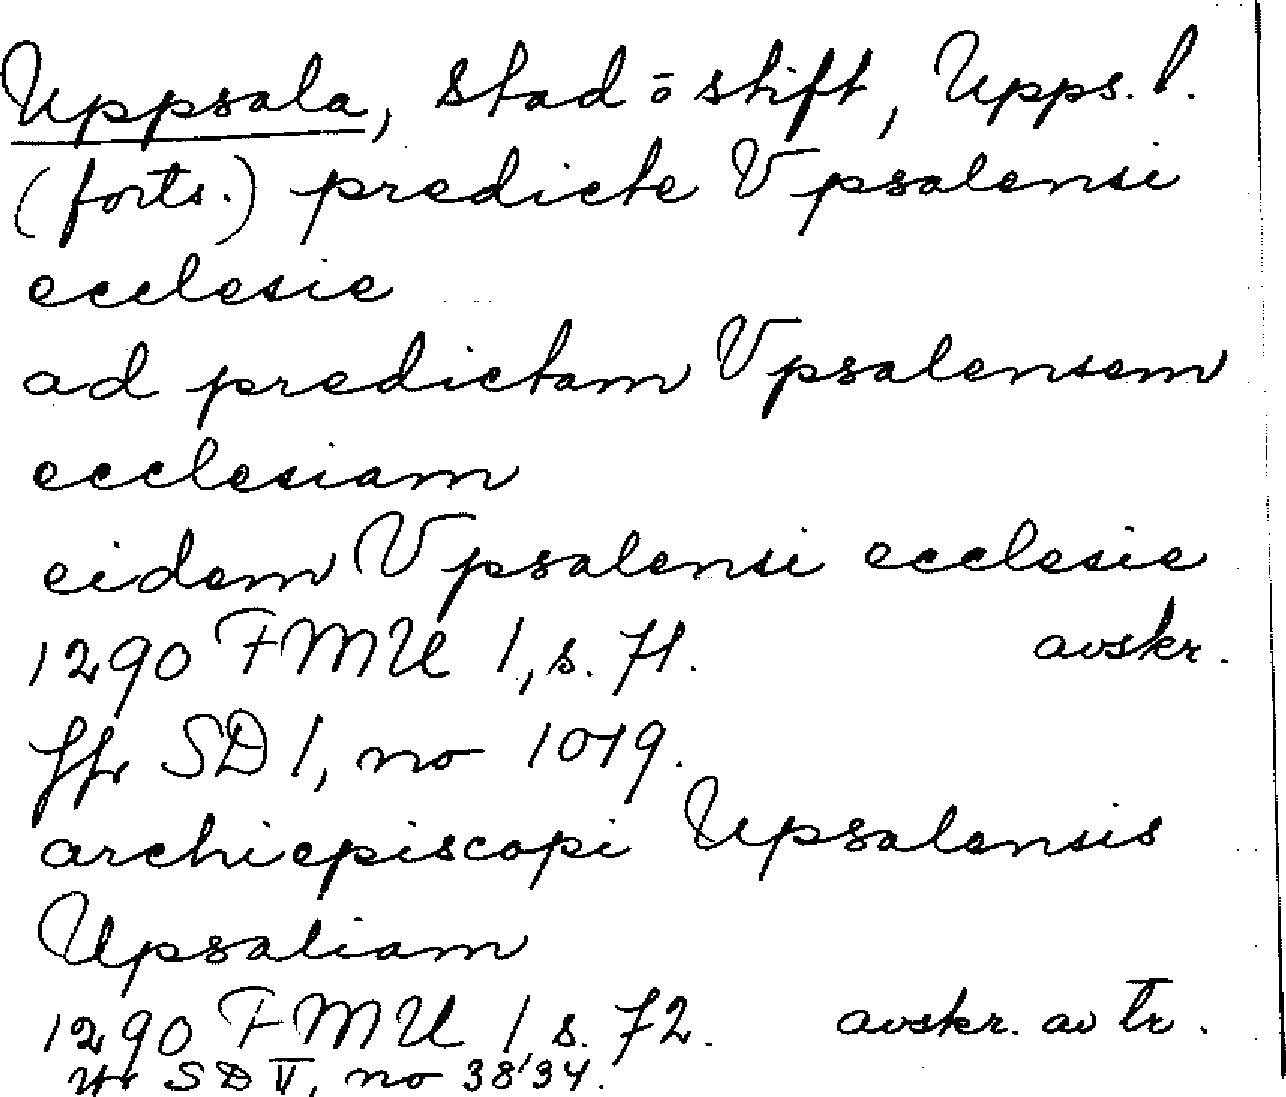 Uppsala, stad o stift, Upps. l.
(forts.) predicte Vpsalensi
ecclesie
ad predictam Vpsalensem
ecclesiam
eidem Vpsalensi ecclesie
1290 FMU 1, s. 71. avskr.
Jfr SD 1, no 1019.
archiepiscopi Upsalensis
Upsaliam
1290 FMU 1, s. 72. avskr. av tr.
ur SD V, no 3834.